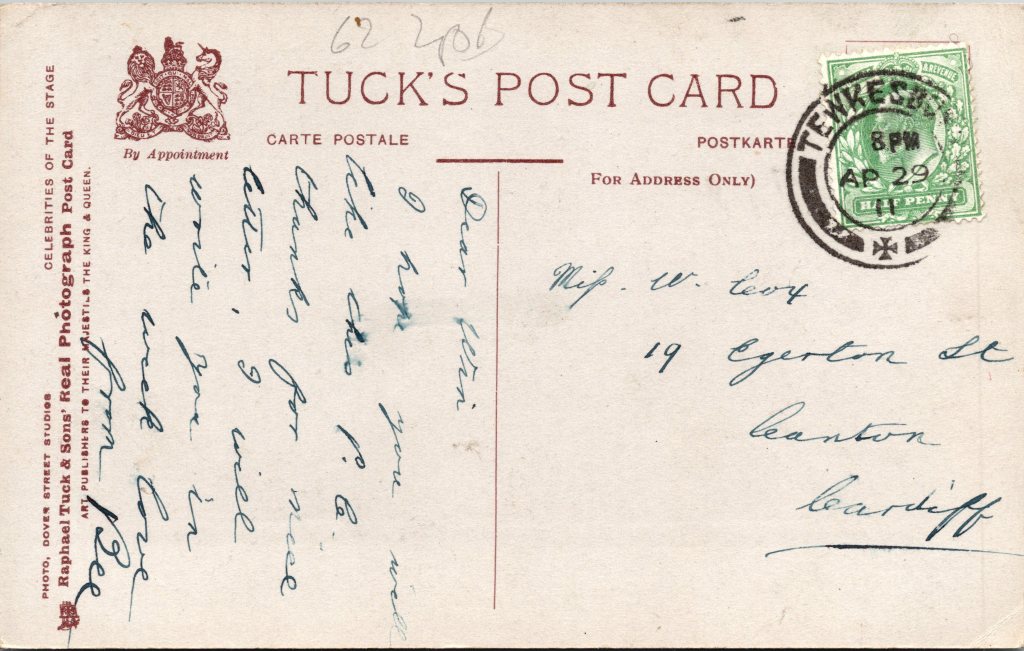 62 2pob
TUCK'S POST CARD
CARTE POSTALE
POSTKARTE
FOR ADDRESS ONLY)
By Appointment
CELEBRITIES OF THE STAGE
PHOTO, DOVER STREET STUDIOS
Raphael Tuck & Sons' Real Photograph Post Card
ART PUBLISHERS TO THEIR MAJESTIES THE KING & QUEEN.
& REVENUE
HALF PENNY
TEWKESBU
8PM
AP 29
11
Dear Win
I hope you will
like this P.C.
thanks for nice
letter, I will
write you in
the week love
from Bee
Miss. W. Cox
19 Egerton St
Canton
Cardiff